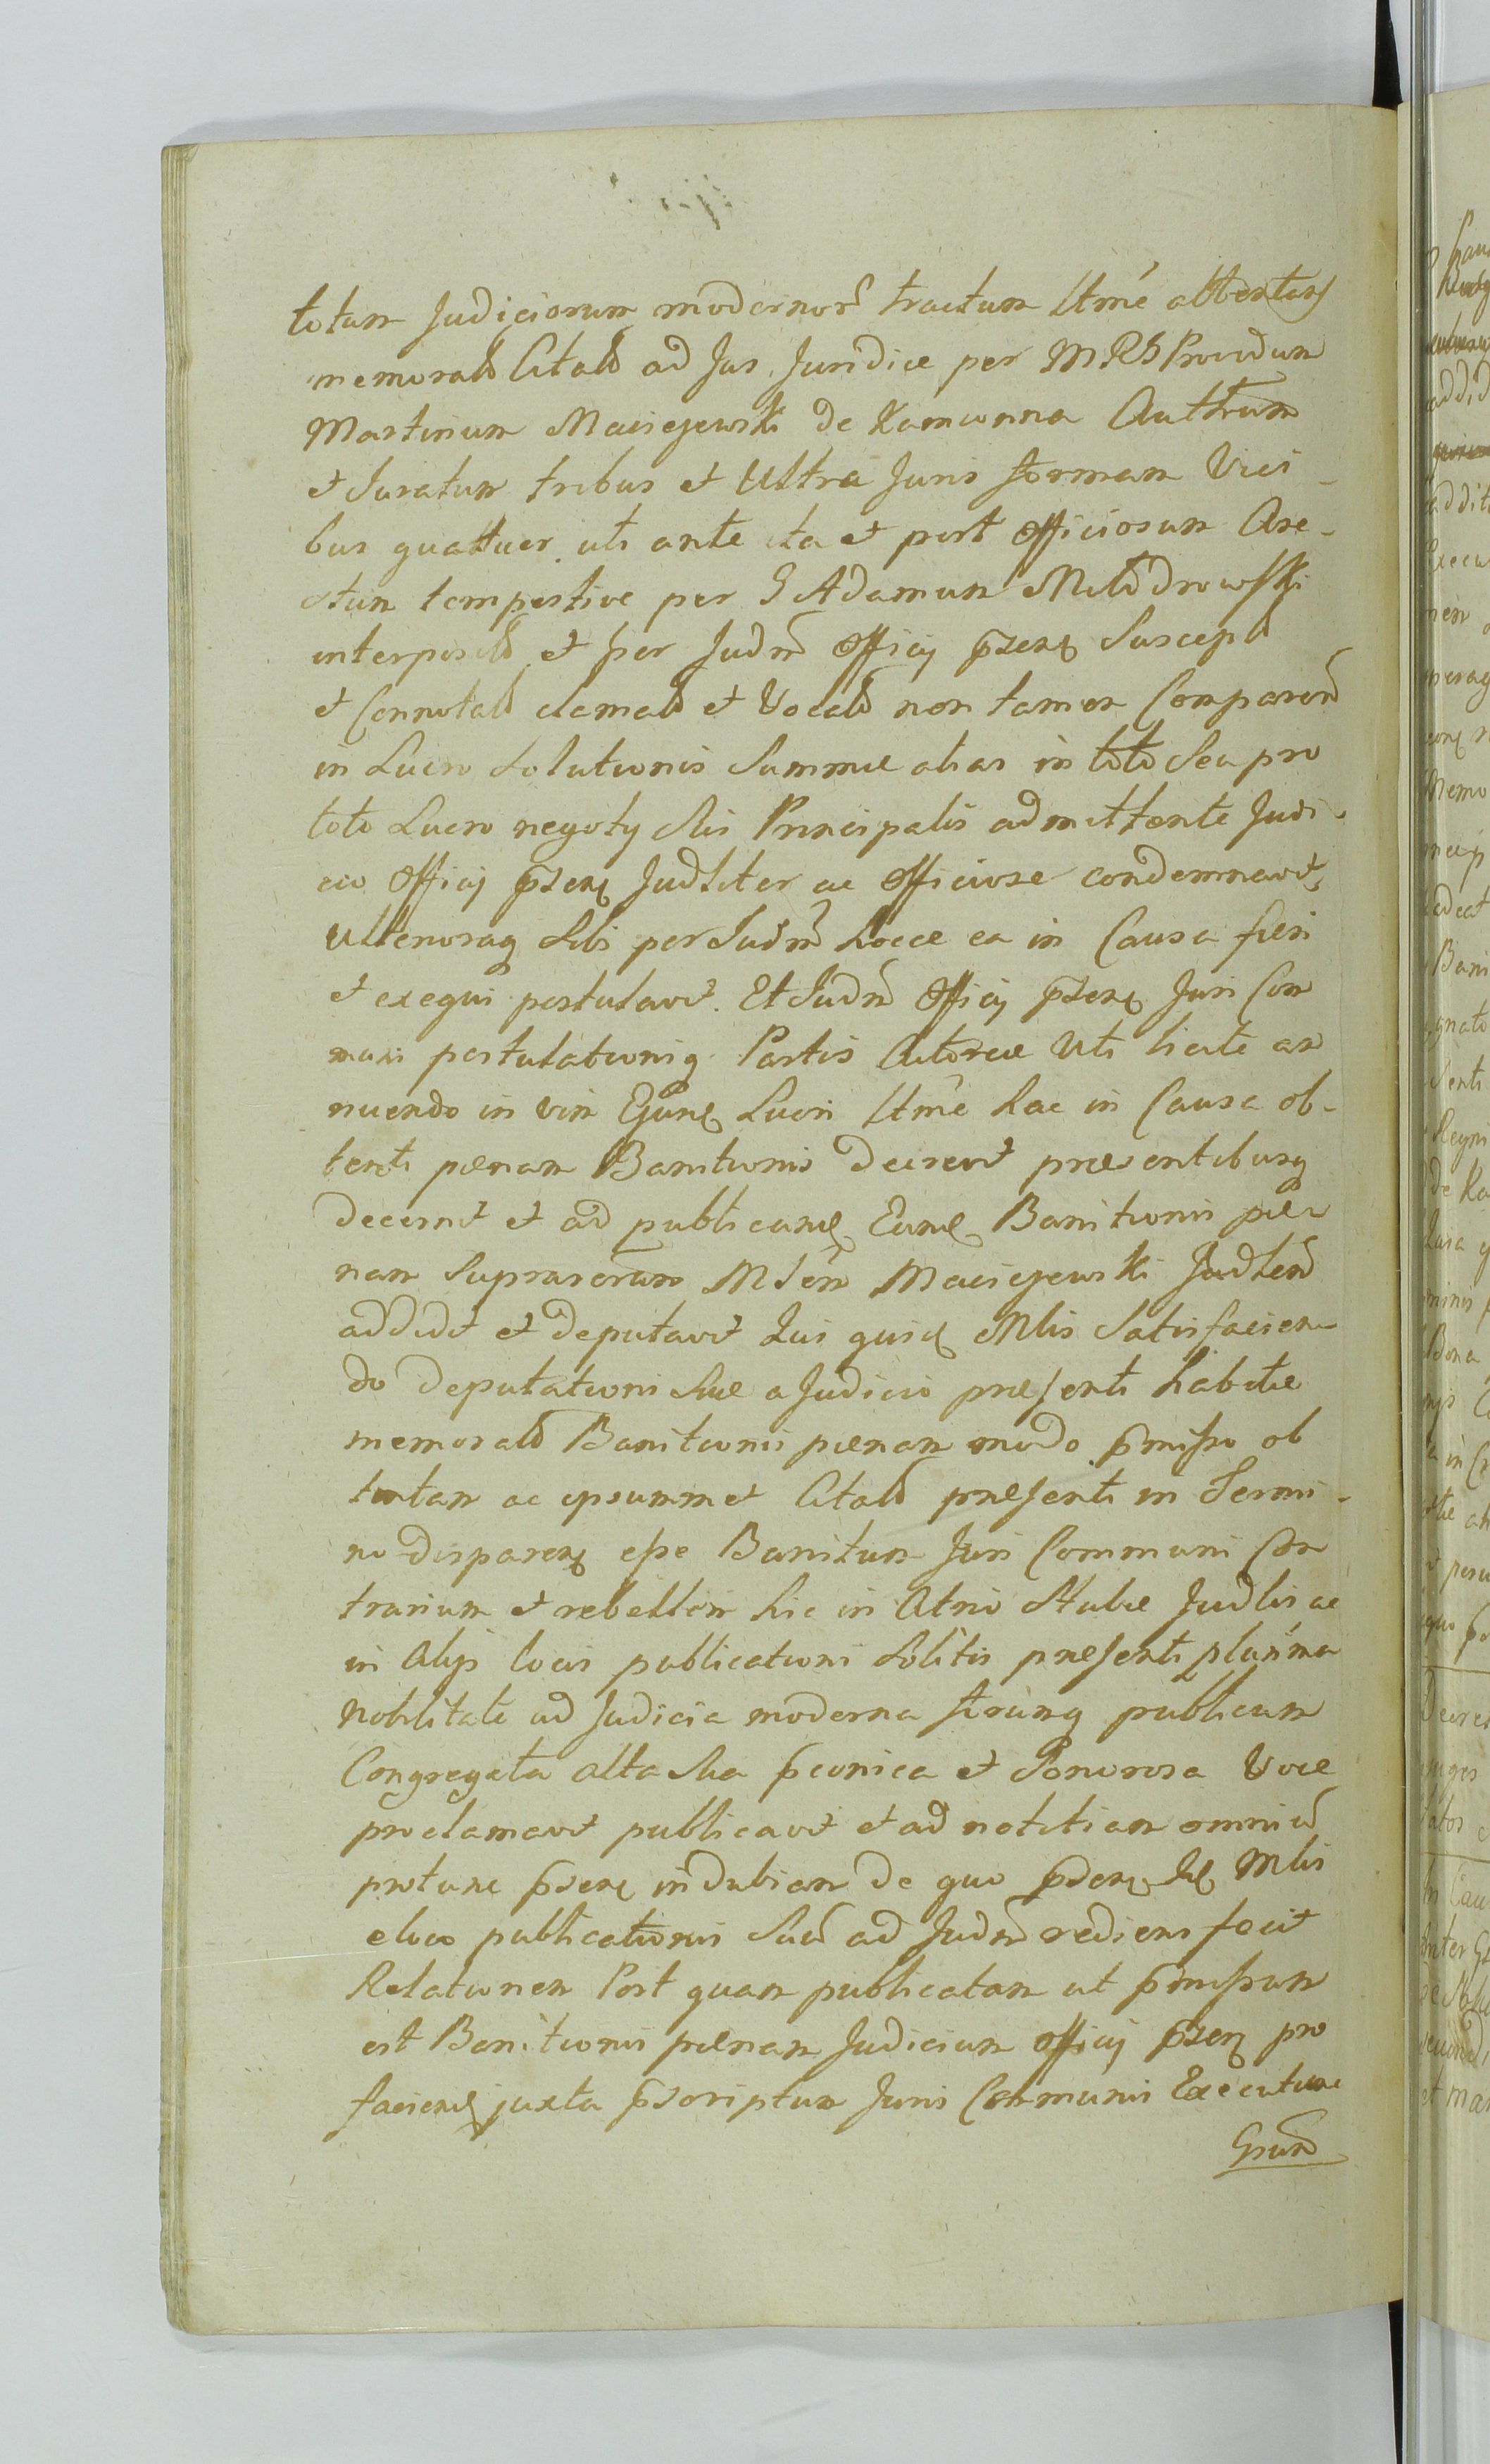 totum Judiciorum modernor tractum Ltme attentars
memorald Citald ad Jus Juridice per MRS Providum
Martinum Maciejewski de Kamionna Authrum
et Juratum tribus et Ultra Juris formam Vici-
bus quattuor uti ante ita et post officiosum Are-
stum tempestive per G Adamum Młłodrowski
interposild et per Judm Officij pzens Suscepld
et Connotald clamald et Vocald non tamen Comparend
in Lucro Solutionis Summae alias in toto Seu pro
toto Lucro negotij Sui Principalis admittente Judi-
cio Officij pzens Judlliter ac officiose condemnavit,
Ulterioraq Sibi per Judm hocce ea in Causa fieri
et exequi postulavit. Et Judm Officij pzens Juri Com
muni postulationiq Partis Actoreae Uti licite an
nuendo in vim Ejusd Lucri Ltme hac in Causa ob-
tenti paenam Banitionis decrevit praesentibusq
decernit et ad publicand Eand Banitionis pae
nam suprascrum Mtem Maciejewski Judlem
addidit et deputavit Qui quid Mlis Satisfacien-
do deputationi Suae a Judicio praesenti habitae
memorald Banitionis paenam modo pmisso ob
tentam ac ipsummet Citald praesenti in Termi-
no disparens esse Banitum Juri Communi Con
trarium et rebellem hic in Atrio Stubae Judlis ac
in Alijs locis publicationi Solitis praesenti plurima
Nobilitate ad Judicia moderna forumq publicum
Congregata alta Sua pconica et Sonorosa Voce
proclamavit publicavit et ad notitiam omniu
protunc pzens indubiam de quo pzens Id Mlis
eloco publicationis Suae ad Judm rediens fecit
Relationem Post quam publicatam ut pmissum
est Banitionis paenam Judicium officij pzens pro
faciend juxta pscriptum Juris Communis Executione
Gsum